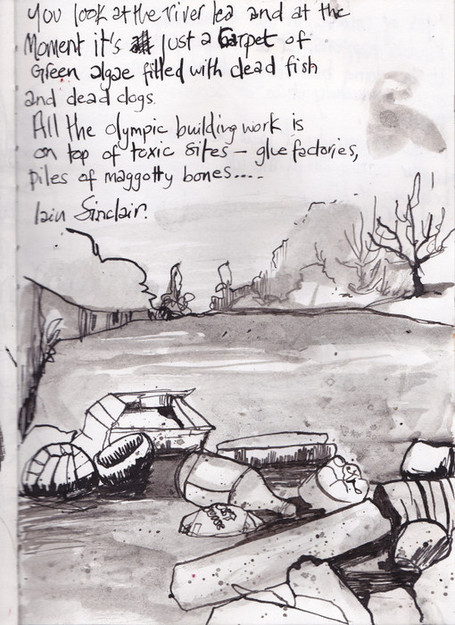 You look at the river lea and at the
Moment it's just a carpet of
Green algae filled with dead fish
and dead dogs.
All the olympic building work is
on top of toxic sites – glue factories,
piles of maggotty bones.....
Iain Sinclair.